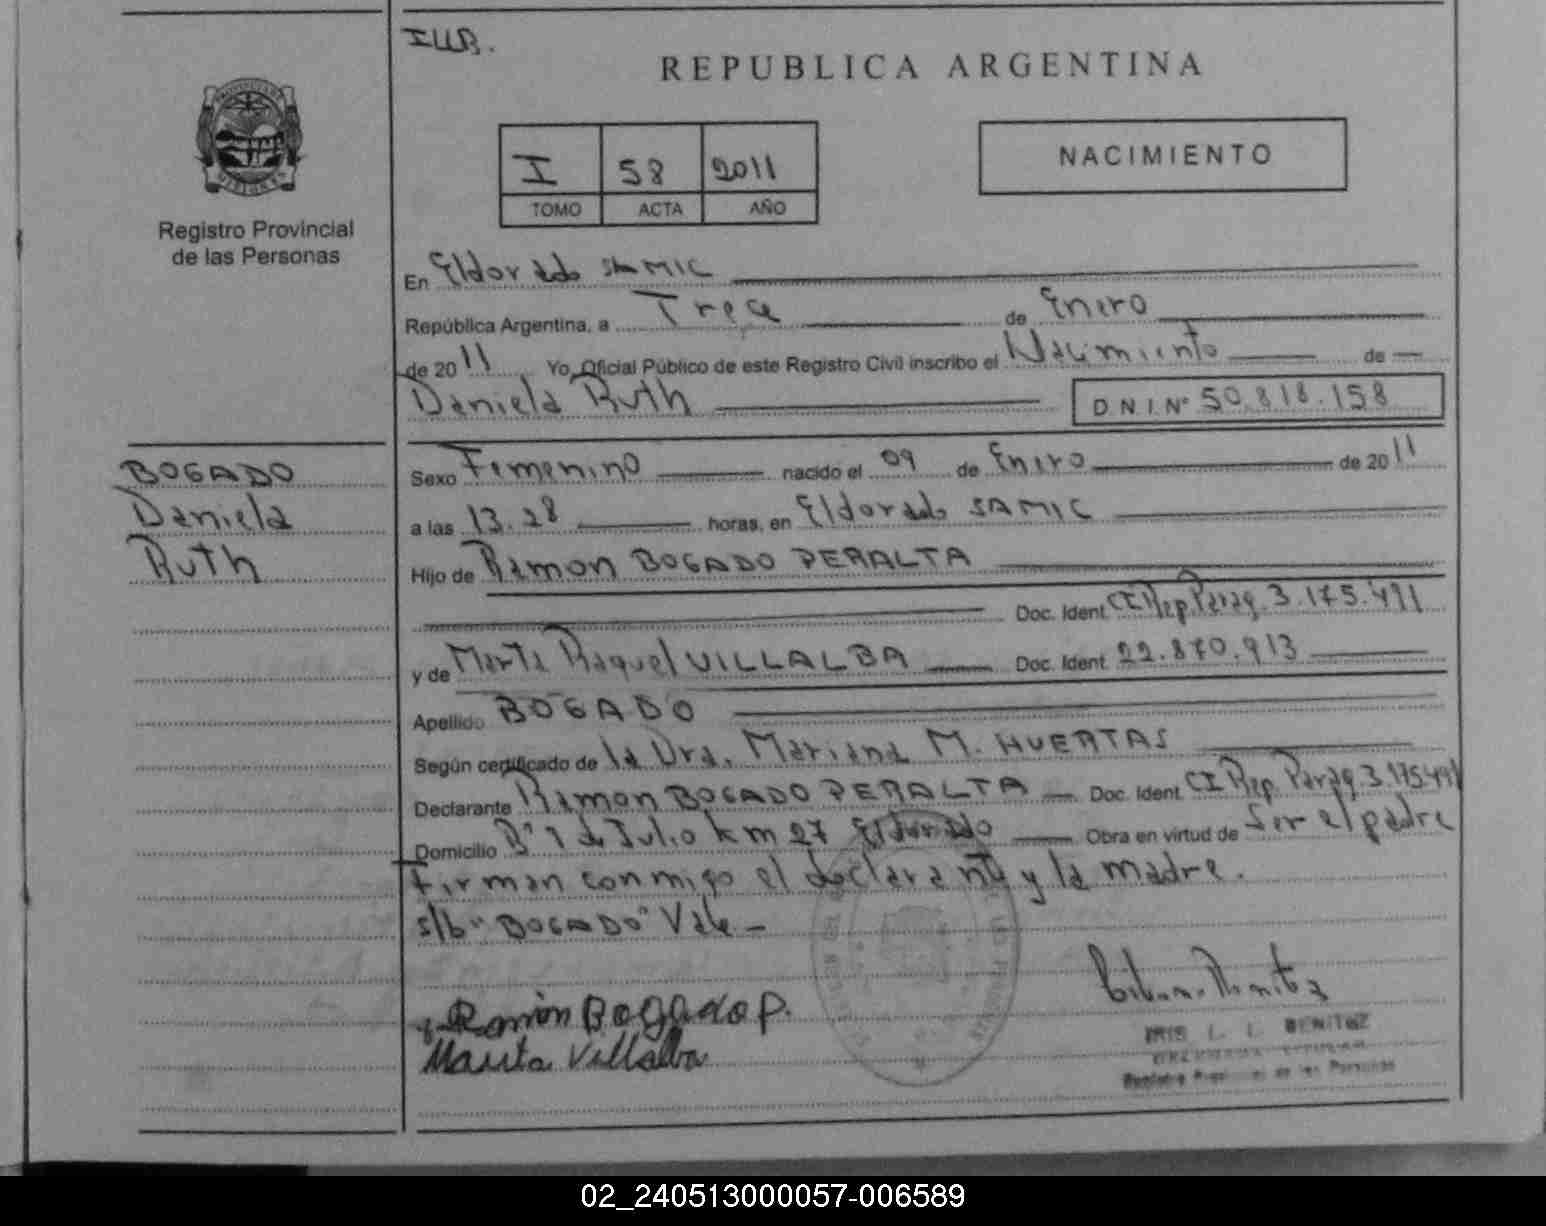 I.U.B.
REPUBLICA ARGENTINA
I 58 2011
TOMO ACTA AÑO
NACIMIENTO
Registro Provincial
de las Personas
En Eldorado SAMIC
República Argentina, a Trece de Enero
de 2011 Yo, Oficial Público de este Registro Civil inscribo el Nacimiento de
Daniela Ruth D.N.I.Nº 50.818.158
BOGADO
Daniela
Ruth
Sexo Femenino nacido el 09 de Enero de 2011
a las 13.28 horas, en Eldorado SAMIC
Hijo de Ramon BOGADO PERALTA
Doc. Ident. CI Rep. Parag. 3.175.491
y de Marta Raquel VILLALBA Doc. Ident. 22.870.913
Apellido BOGADO
Según certificado de la Dra. Mariana M. HUERTAS
Declarante Ramon BOGADO PERALTA Doc. Ident. CI Rep. Parag. 3.175.491
Domicilio Bº 1 de Julio km 27 Eldorado Obra en virtud de Ser el padre
Firman conmigo el declarante y la madre.
s/b "BOGADO" Vale -
Ramón Bogado P.
Marta Villalba
IRIS L. I. BENITEZ
Registro Provincial de las Personas
02_240513000057-006589